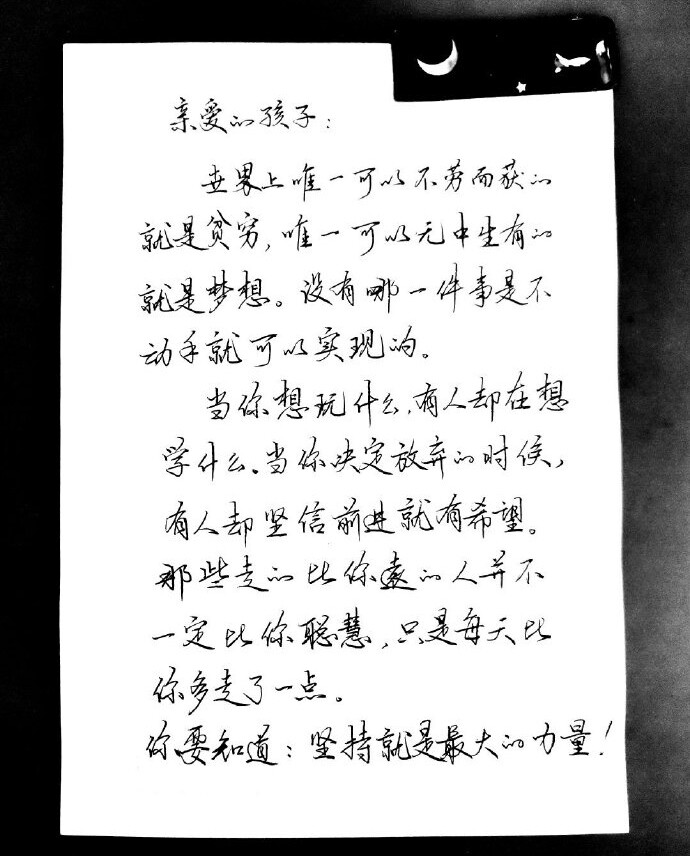 亲爱的孩子：
世界上唯一可以不劳而获的
就是贫穷，唯一可以无中生有的
就是梦想。没有哪一件事是不
动手就可以实现的。
当你想玩什么，有人却在想
学什么。当你决定放弃的时候，
有人却坚信前进就有希望。
那些走的比你远的人并不
一定比你聪慧，只是每天比
你多走了一点。
你要知道：坚持就是最大的力量！